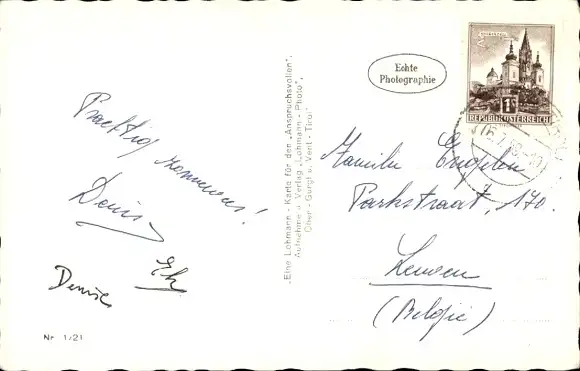 Echte
Photographie
REPUBLIK ÖSTERREICH
Prachtig
Denis
Denise
Nr. 1/21
„Eine Lohmann - Karte für den „Anspruchsvollen“,
Aufnahme u. Verlag „Lohmann - Photo“,
Ober - Gurgl u. Vent - Tirol
Familie
Parkstraat, 170.
Leuven
(België)